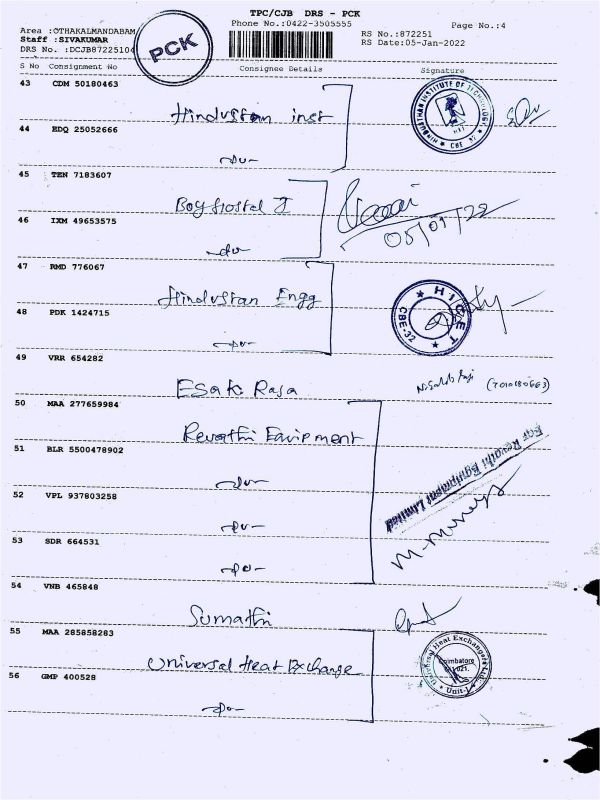 TPC/CJB DRS - PCK
Phone No.:0422-3505555
Page No.:4
Area :OTHAKALMANDABAM
Staff :SIVAKUMAR
DRS No. :DCJB87225104
PCK
RS No.:872251
RS Date:05-Jan-2022
S No Consignment No Consignee Details Signature
43 CDM 50180463
Hindustan inst
HINDUSTHAN INSTITUTE OF TECHNOLOGY
HIT
CBE 32
44 EDQ 25052666
-do-
45 TEN 7183607
Boy Hostel I
05/01/22
46 IXM 49653575
-do-
47 RMD 776067
Hindustan Engg
HICET
CBE-32
48 PDK 1424715
-do-
49 VRR 654282
Esakki Raja
50 MAA 277659984
Revathi Equipment
For Revathi Equipment Limited
51 BLR 5500478902
-do-
52 VPL 937803258
-do-
53 SDR 664531
-do-
54 VNB 465848
Sumathi
55 MAA 285858283
Universal Heat Exchange
Universal Heat Exchangers Ltd.
Coimbatore
Unit-I
56 GMP 400528
-do-